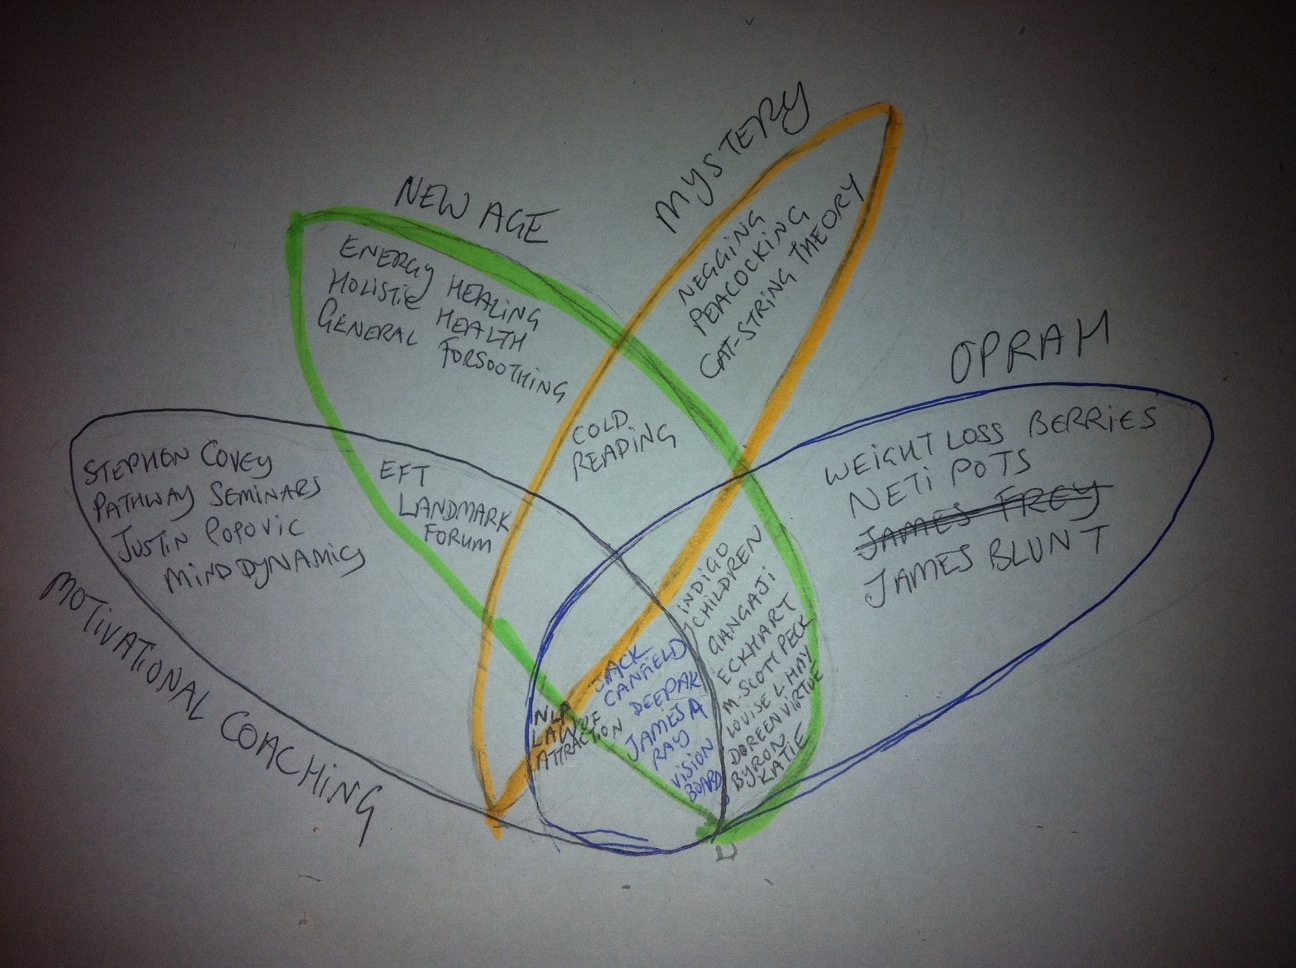 MYSTERY
NEW AGE
NEGGING
PEACOCKING
CAT-STRING THEORY
ENERGY HEALING
HOLISTIC HEALTH
GENERAL FORSOOTHING
OPRAH
COLD
READING
WEIGHT LOSS BERRIES
NETI POTS
JAMES FREY
JAMES BLUNT
STEPHEN COVEY
PATHWAY SEMINARS
JUSTIN POPOVIC
MINDDYNAMICS
EFT
LANDMARK
FORUM
MOTIVATIONAL COACHING
INDIGO
CHILDREN
GANGAJI
ECKHART
M. SCOTT PECK
LOUISE L. HAY
DOREEN VIRTUE
BYRON
KATIE
JACK
CANFIELD
DEEPAK
JAMES A
RAY
VISION
BOARD
NLP
LAW OF
ATTRACTION